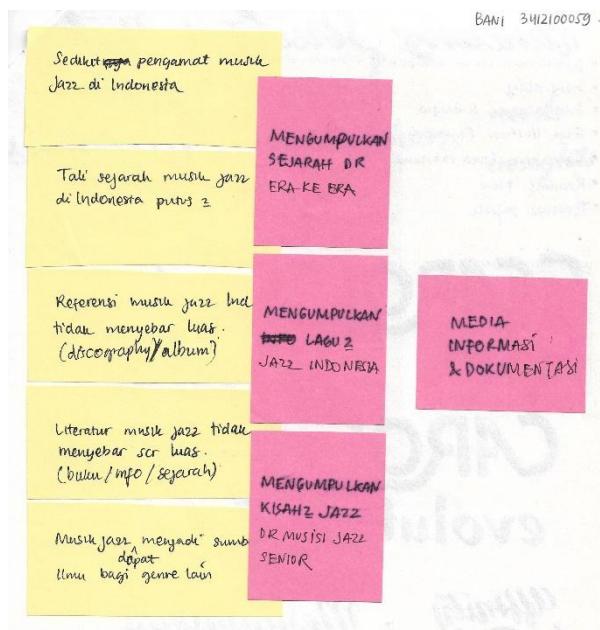 BANI 3412100059
Sedikitnya pengamat musik
Jazz di Indonesia
Tali sejarah musik jazz
di Indonesia putus 2
Referensi musik jazz Ind
tidak menyebar luas.
(discography/album)
Literatur musik jazz tidak
menyebar scr luas.
(buku/info/sejarah)
Musik jazz dapat menjadi sumb
Ilmu bagi genre lain
MENGUMPULKAN
SEJARAH DR
ERA KE ERA
MENGUMPULKAN
LAGU2
JAZZ INDONESIA
MENGUMPULKAN
KISAH2 JAZZ
DR MUSISI JAZZ
SENIOR
MEDIA
INFORMASI
& DOKUMENTASI